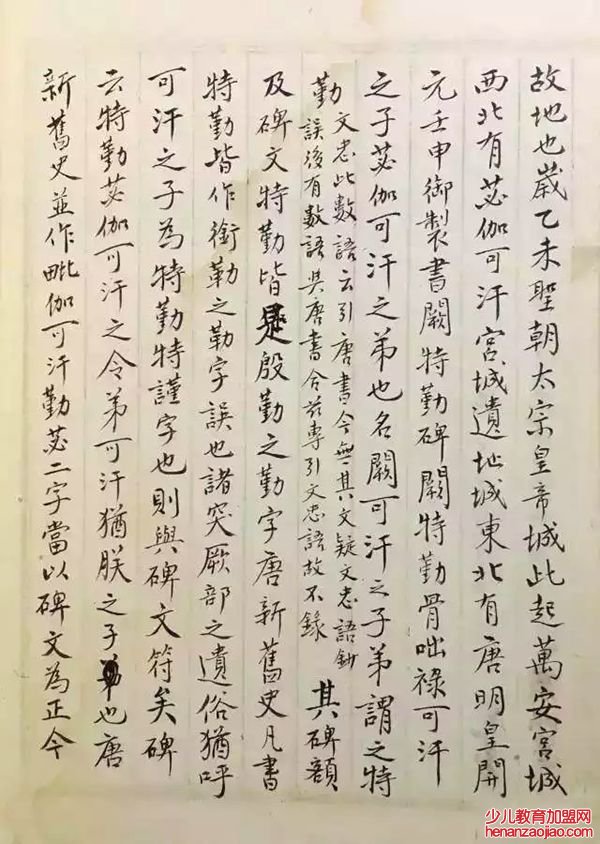 故地也歲乙未聖朝太宗皇帝城此起萬安宮城
西北有苾伽可汗宮城遺地城東北有唐明皇開
元壬申御製書闕特勤碑闕特勤骨咄祿可汗
之子苾伽可汗之弟也名闕可汗之子弟謂之特
勤
文忠此數語云引唐書今無其文疑文忠語鈔
誤後有數語與唐書合茲專引文忠語故不錄
其碑額
及碑文特勤皆是殷勤之勤字唐新舊史凡書
特勤皆作銜勒之勒字誤也諸突厥部之遺俗猶呼
可汗之子為特勤特謹字也則與碑文符矣碑
云特勤苾伽可汗之令弟可汗猶朕之子也唐
新舊史並作毗伽可汗勤苾二字當以碑文為正今
少儿教育加盟网
henanzaojiao.com